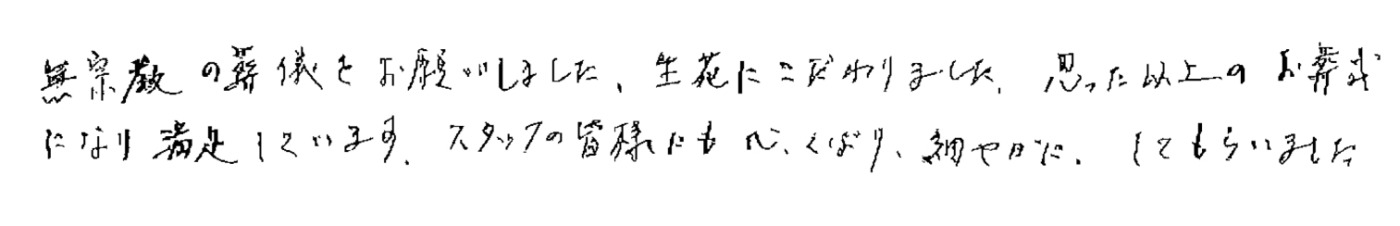 無宗教の葬儀をお願いしました、生花にこだわりました。思った以上のお葬式
になり満足しています。スタッフの皆様にも心くばり、細やかに、してもらいました